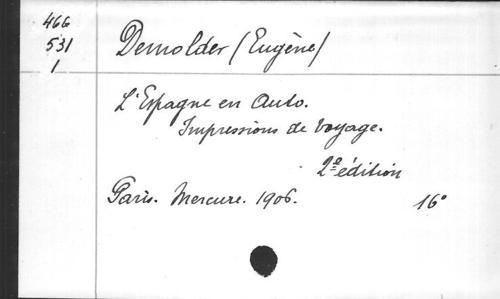 466
531
1
Demolder (Eugène)
L'Espagne en Auto.
Impressions de Voyage.
2e édition
Paris. Mercure. 1906. 16°